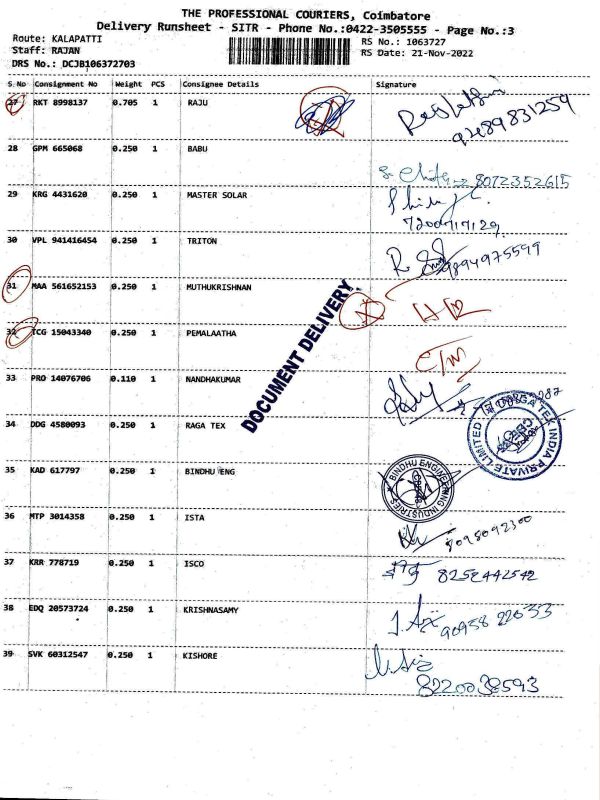 THE PROFESSIONAL COURIERS, Coimbatore
Delivery Runsheet - SITR - Phone No.:0422-3505555 - Page No.:3
Route: KALAPATTI
Staff: RAJAN
DRS No.: DCJB106372703
RS No.: 1063727
RS Date: 21-Nov-2022
S No Consignment No Weight PCS Consignee Details Signature
27 RKT 8998137 0.705 1 RAJU
28 GPM 665068 0.250 1 BABU 8072352615
29 KRG 4431620 0.250 1 MASTER SOLAR
30 VPL 941416454 0.250 1 TRITON 9894975599
31 MAA 561652153 0.250 1 MUTHUKRISHNAN
32 TCG 15043340 0.250 1 PEMALAATHA
DOCUMENT DELIVERY.
33 PRO 14076706 0.110 1 NANDHAKUMAR
34 DDG 4580093 1 RAGA TEX RAGA TEX INDIA PRIVATE LIMITED
35 KAD 617797 0.250 1 BINDHU ENG BINDHU ENGINEERING INDUSTRIES
36 MTP 3014358 0.250 1 ISTA 8098092300
37 KRR 778719 0.250 1 ISCO 8252442542
38 EDQ 20573724 0.250 1 KRISHNASAMY
39 SVK 60312547 0.250 1 KISHORE 8220038593